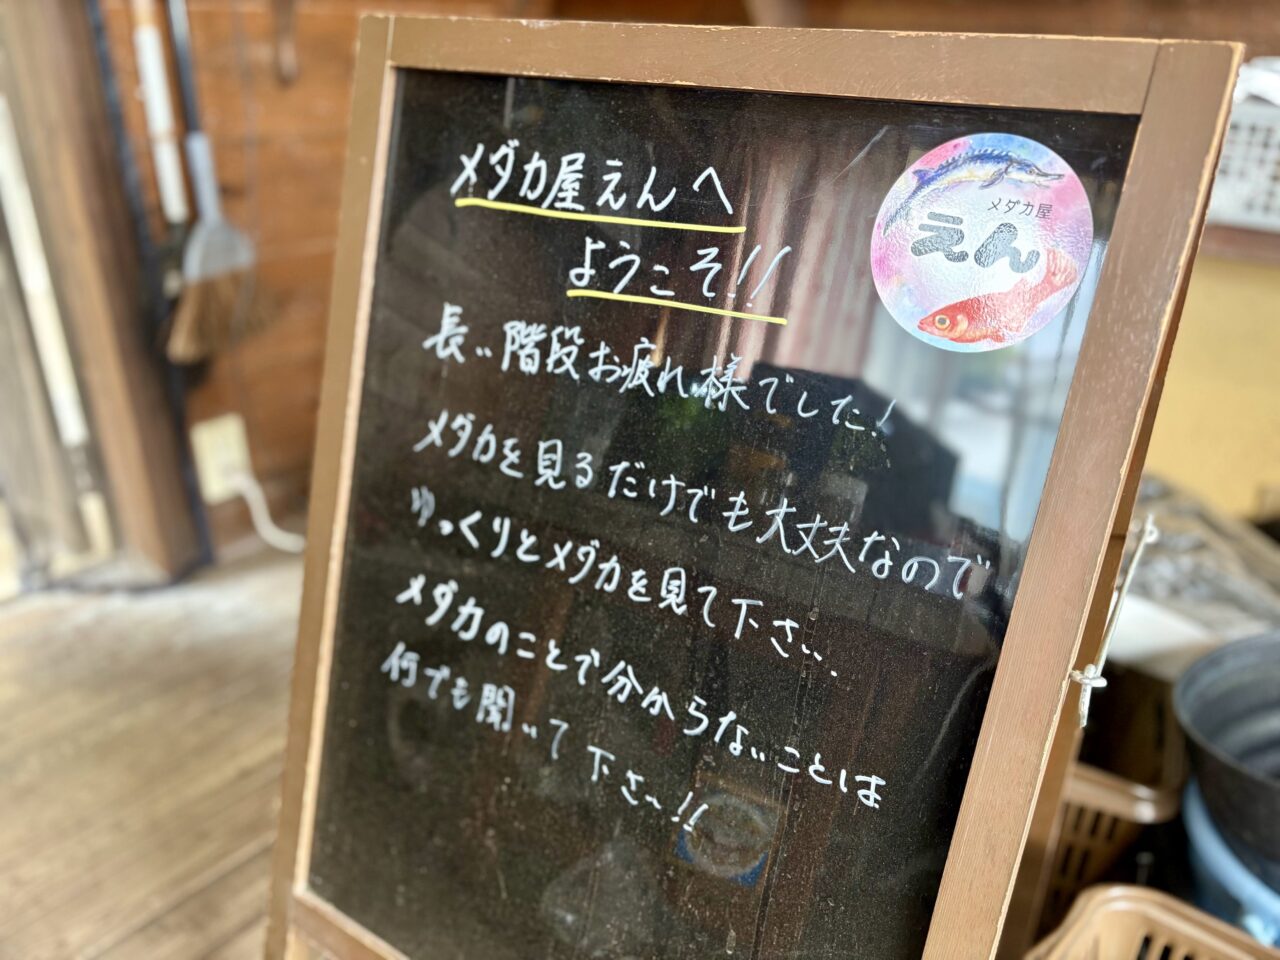 メダカ屋えんへ
ようこそ!!
長い階段お疲れ様でした!
メダカを見るだけでも大丈夫なので
ゆっくりとメダカを見て下さい.
メダカのことで分からないことは
何でも聞いて下さい!!
メダカ屋
えん